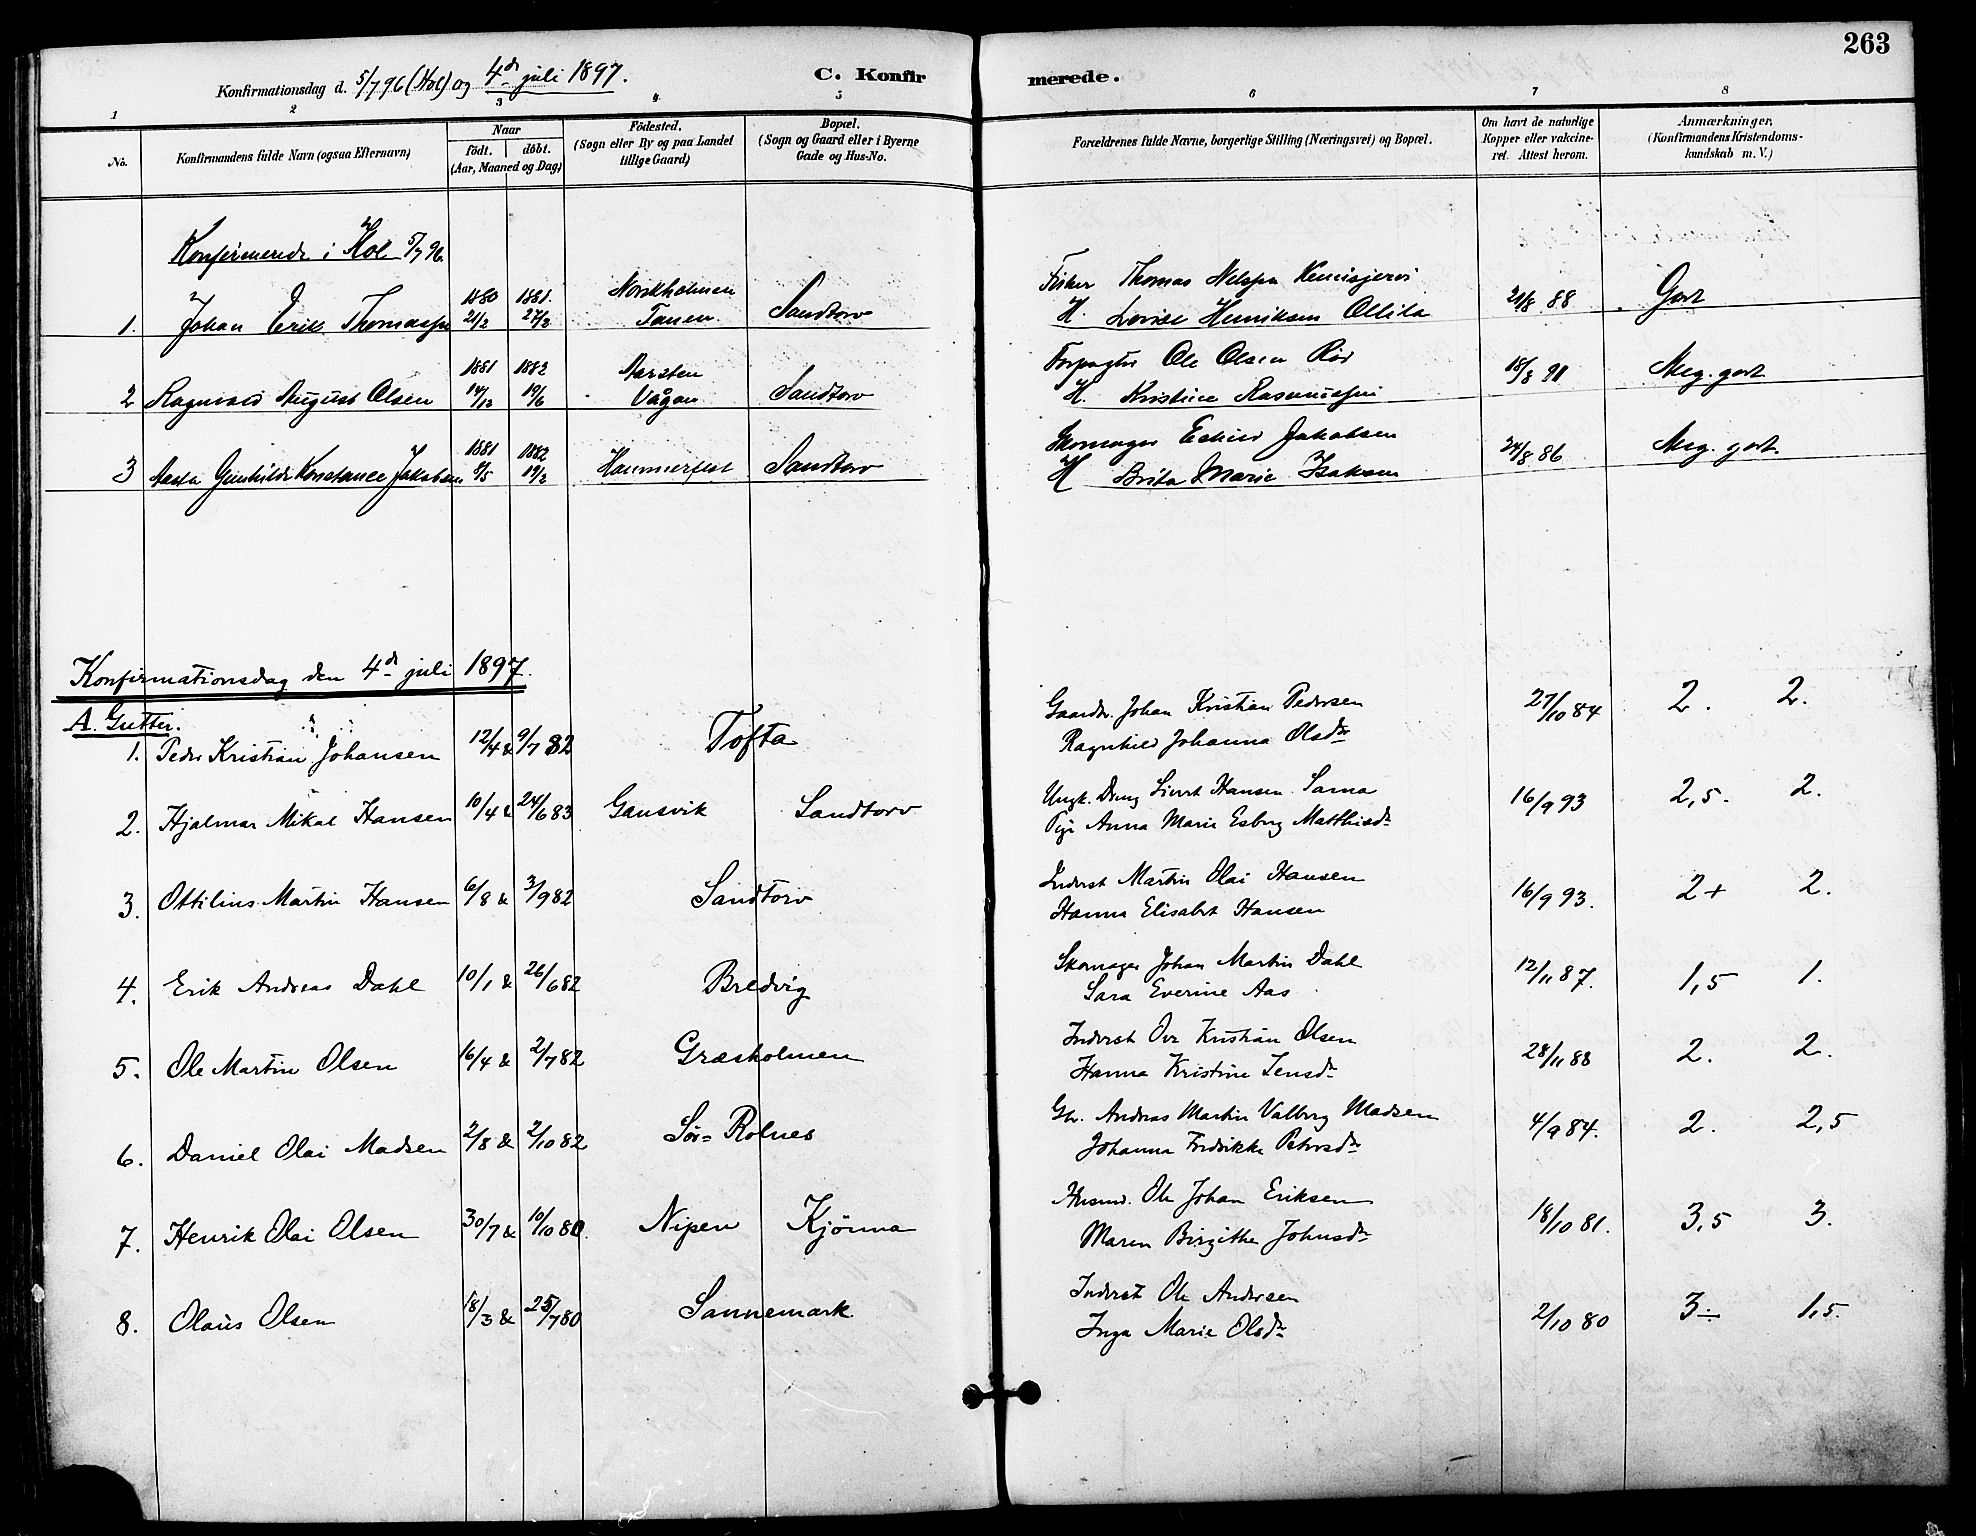 263
Konfirmationsdag d. 5/7 96 (Hol) og 4de juli 1897.
C. Konfirmerede.
1 2 3 4 5 6 7 8
No.
Konfirmandens fulde Navn (ogsaa Efternavn)
Naar
født. døbt.
(Aar, Maaned og Dag)
Fødested.
(Sogn eller By og paa Landet
tillige Gaard)
Bopæl.
(Sogn og Gaard eller i Byerne
Gade og Hus-No.
Forældrenes fulde Navne, borgerlige Stilling (Næringsvei) og Bopæl.
Om havt de naturlige
Kopper eller vakcine-
ret. Attest herom.
Anmærkninger,
(Konfirmandens Kristendoms-
kundskab m. V.)
Konfirmerede i Hol 5/7 96
1. Johan Erik Thomassen 1880 21/2 1881 27/3 Tanen Sandtorv Fisker Thomas
H. Lovise Henriksen Ollila 21/8 88 Godt
2 Ragnvald August Olsen 1881 14/12 1882 19/6 Vågan Sandtorv Forpagter Ole Olsen
H. Kristine Rasmussen 18/8 91 Meg. godt
3 Aasta Gunhilde Konstance Jakobsen 1881 8/5 1882 19/2 Hammerfest Sandtorv Skomager Jakobsen
H Brita Marie Isaksen 24/8 86 Meg. godt.
Konfirmationsdag den 4de juli 1897.
A. Gutter.
1. Peder Kristian Johansen 12/4 & 9/7 82 Tofta Gaardbr. Johan Kristian Pedersen
Ragnhild Johanna Olsdr 27/10 84 2. 2.
2. Hjalmar Mikal Hansen 10/4 & 24/6 83 Gausvik Sandtorv Ungk. Sivert Hansen Sama
Pige Anna Marie Esberg Matthisdr 16/9 93 2,5. 2.
3. Ottilius Martin Hansen 6/8 & 3/9 82 Sandtorv Inderst Martin Olai Hansen
Hanna Elisabet Hansen 16/9 93. 2+ 2.
4. Erik Andreas Dahl 10/1 & 26/6 82 Bredvig Skomager Johan Martin Dahl
Sara Everine Aas 12/11 87. 1,5 1.
5. Ole Martin Olsen 16/4 & 2/7 82 Græsholmen Inderst Ove Kristian Olsen
Hanna Kristine Jensdr 28/11 88 2. 2.
6. Daniel Olai Madsen 2/8 & 2/10 82 Sør-Rolnes Gbr. Andreas Martin Valberg Madsen
Johanna Fredrikke Petersdr 4/9 84. 2. 2,5
7. Henrik Olai Olsen 30/7 & 10/10 80. Nipen Kjønna Husmd. Ole Johan Eriksen
Maren Birgithe Johnsdr 18/10 81. 3,5 3.
8. Olaus Olsen 18/3 & 25/7 80 Sannemark Inderst Ole Andersen
Inga Marie Olsdr 2/10 80 3÷ 1,5.